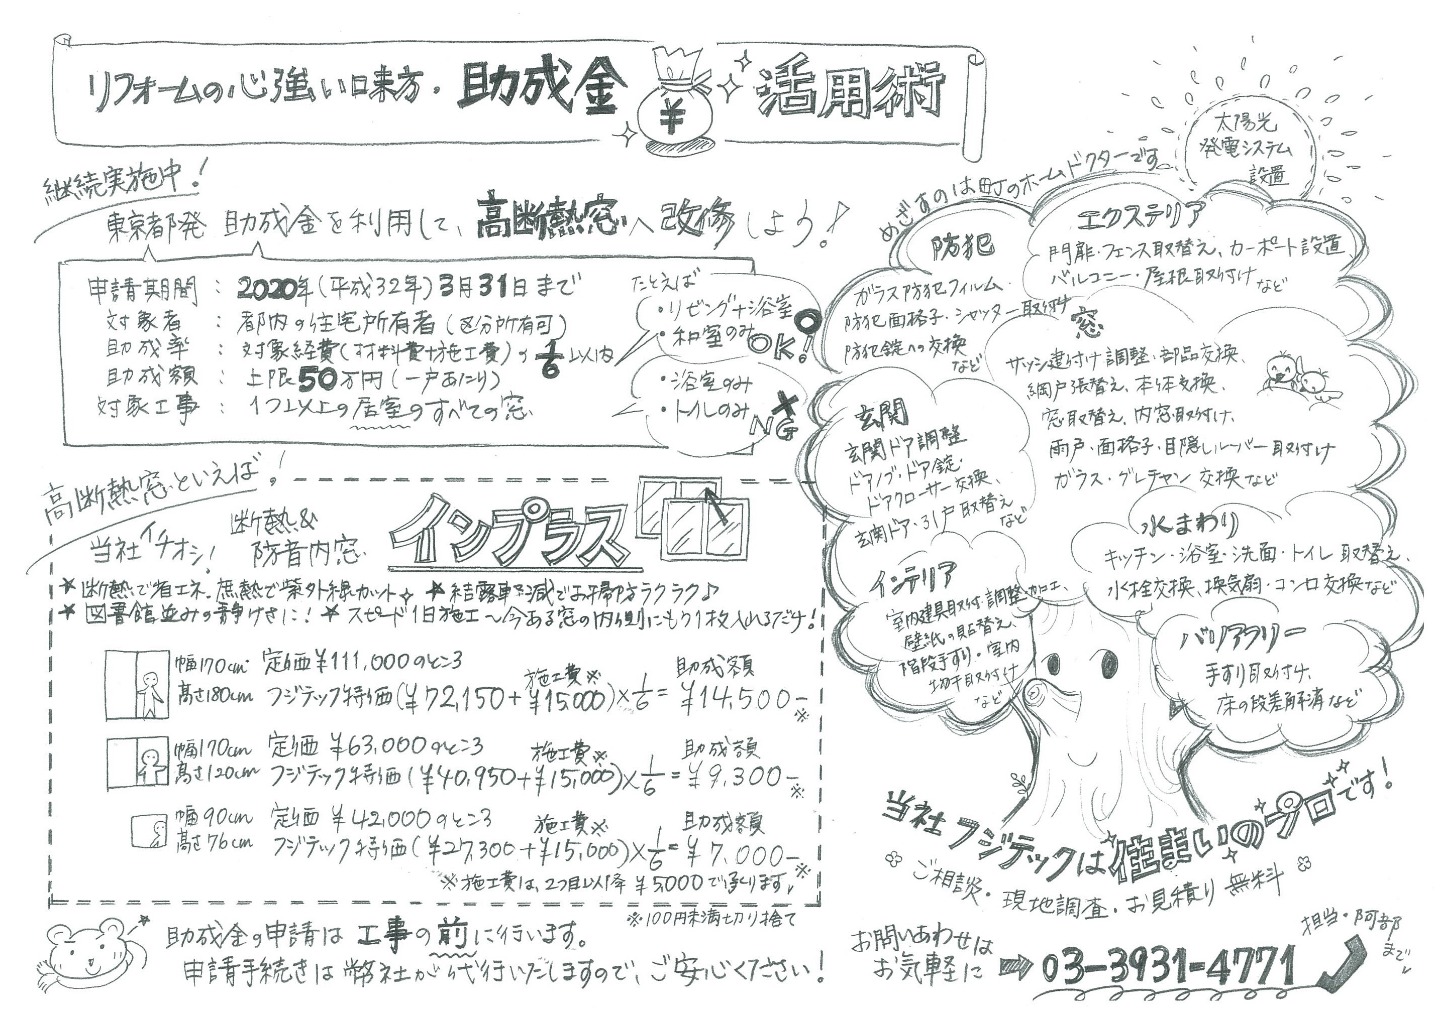 リフォームの心強い味方・助成金 活用術
継続実施中！
東京都発 助成金を利用して、高断熱窓へ改修しよう！
申請期間 : 2020年(平成32年)3月31日まで
対象者 : 都内の住宅所有者(区分所有可)
助成率 : 対象経費(材料費+施工費)の1/6以内
助成額 : 上限50万円(一戸あたり)
対象工事 : 1つ以上の居室のすべての窓
たとえば
・リビング+浴室
・和室のみ
OK!
・浴室のみ
・トイレのみ
NG
高断熱窓といえば！
当社イチオシ！
断熱&
防音内窓
インプラス
★断熱で省エネ。遮熱で紫外線カット ★結露軽減でお掃除ラクラク♪
★図書館並みの静けさに！★スピード1日施工～今ある窓の内側にもう1枚入れるだけ！
幅170cm 定価¥111,000のところ
高さ180cm フジテック特価(¥72,150+¥15,000)×1/6=¥14,500-※
施工費※ 助成額
幅170cm 定価¥63,000のところ
高さ120cm フジテック特価(¥40,950+¥15,000)×1/6=¥9,300-※
施工費※ 助成額
幅90cm 定価¥42,000のところ
高さ76cm フジテック特価(¥27,300+¥15,000)×1/6=¥7,000-※
施工費※ 助成額
※施工費は、2つ目以降¥5,000で承ります。
※100円未満切り捨て
助成金の申請は工事の前に行います。
申請手続きは弊社が代行いたしますので、ご安心ください！
太陽光
発電システム
設置
めざすのは町のホームドクターです
防犯
ガラス防犯フィルム・
防犯面格子・シャッター取付け
防犯錠への交換
など
エクステリア
門扉・フェンス取替え、カーポート設置
バルコニー・屋根取付け
など
窓
サッシ建付け調整・部品交換、
網戸張替え、本体交換、
窓取替え、内窓取付け、
雨戸・面格子・目隠しルーバー取付け
ガラス・グレチャン交換など
玄関
玄関ドア調整
ドアノブ・ドア錠・
ドアクローサー交換、
玄関ドア・引戸取替え
など
水まわり
キッチン・浴室・洗面・トイレ取替え、
水栓交換、換気扇・コンロ交換など
インテリア
室内建具取付・調整・加工、
壁紙の貼替え、
階段手すり・室内
物干取付け
など
バリアフリー
手すり取付け、
床の段差解消など
当社フジテックは住まいのプロです！
ご相談・現地調査・お見積り無料
お問いあわせは
お気軽に
03-3931-4771
担当・阿部
まで